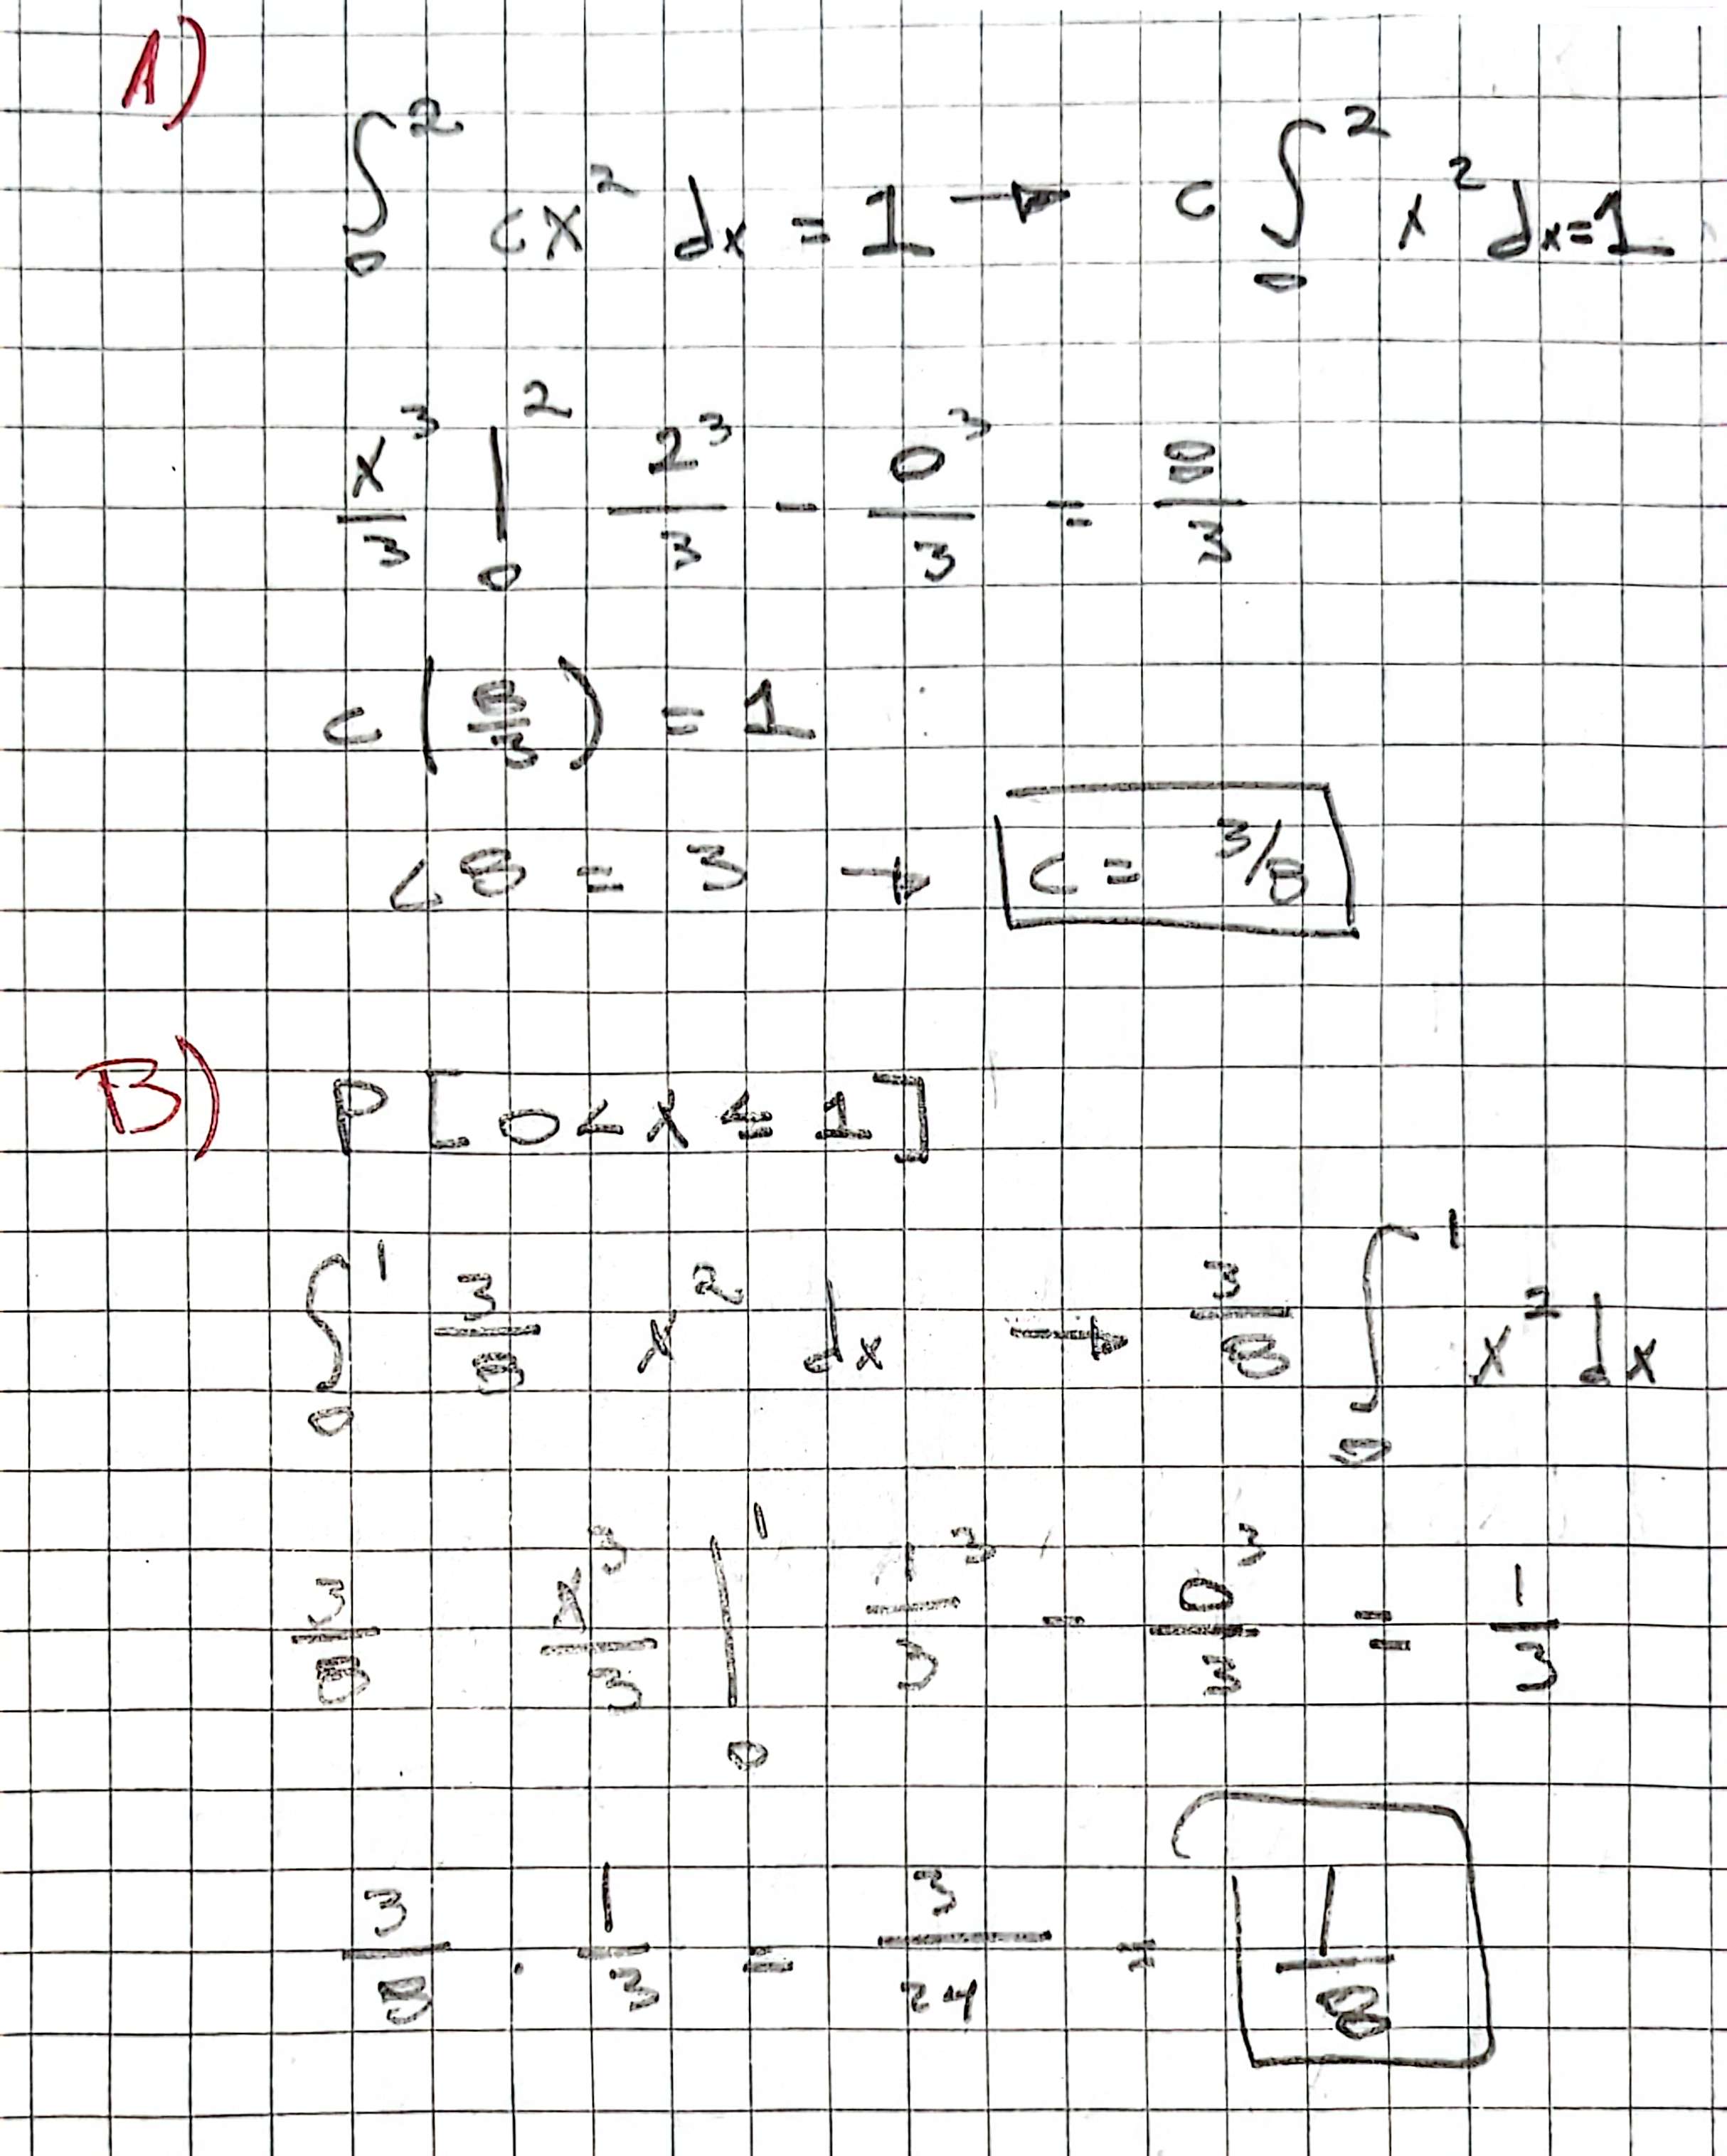 A)
∫₀² cx² dx = 1 → c ∫₀² x² dx = 1
x³/3 |₀² 2³/3 - 0³/3 = 8/3
c (8/3) = 1
c 8 = 3 → c = 3/8
B) P [0 < x ≤ 1]
∫₀¹ 3/8 x² dx → 3/8 ∫₀¹ x² dx
3/8 x³/3 |₀¹ 1³/3 - 0³/3 = 1/3
3/8 · 1/3 = 3/24 = 1/8